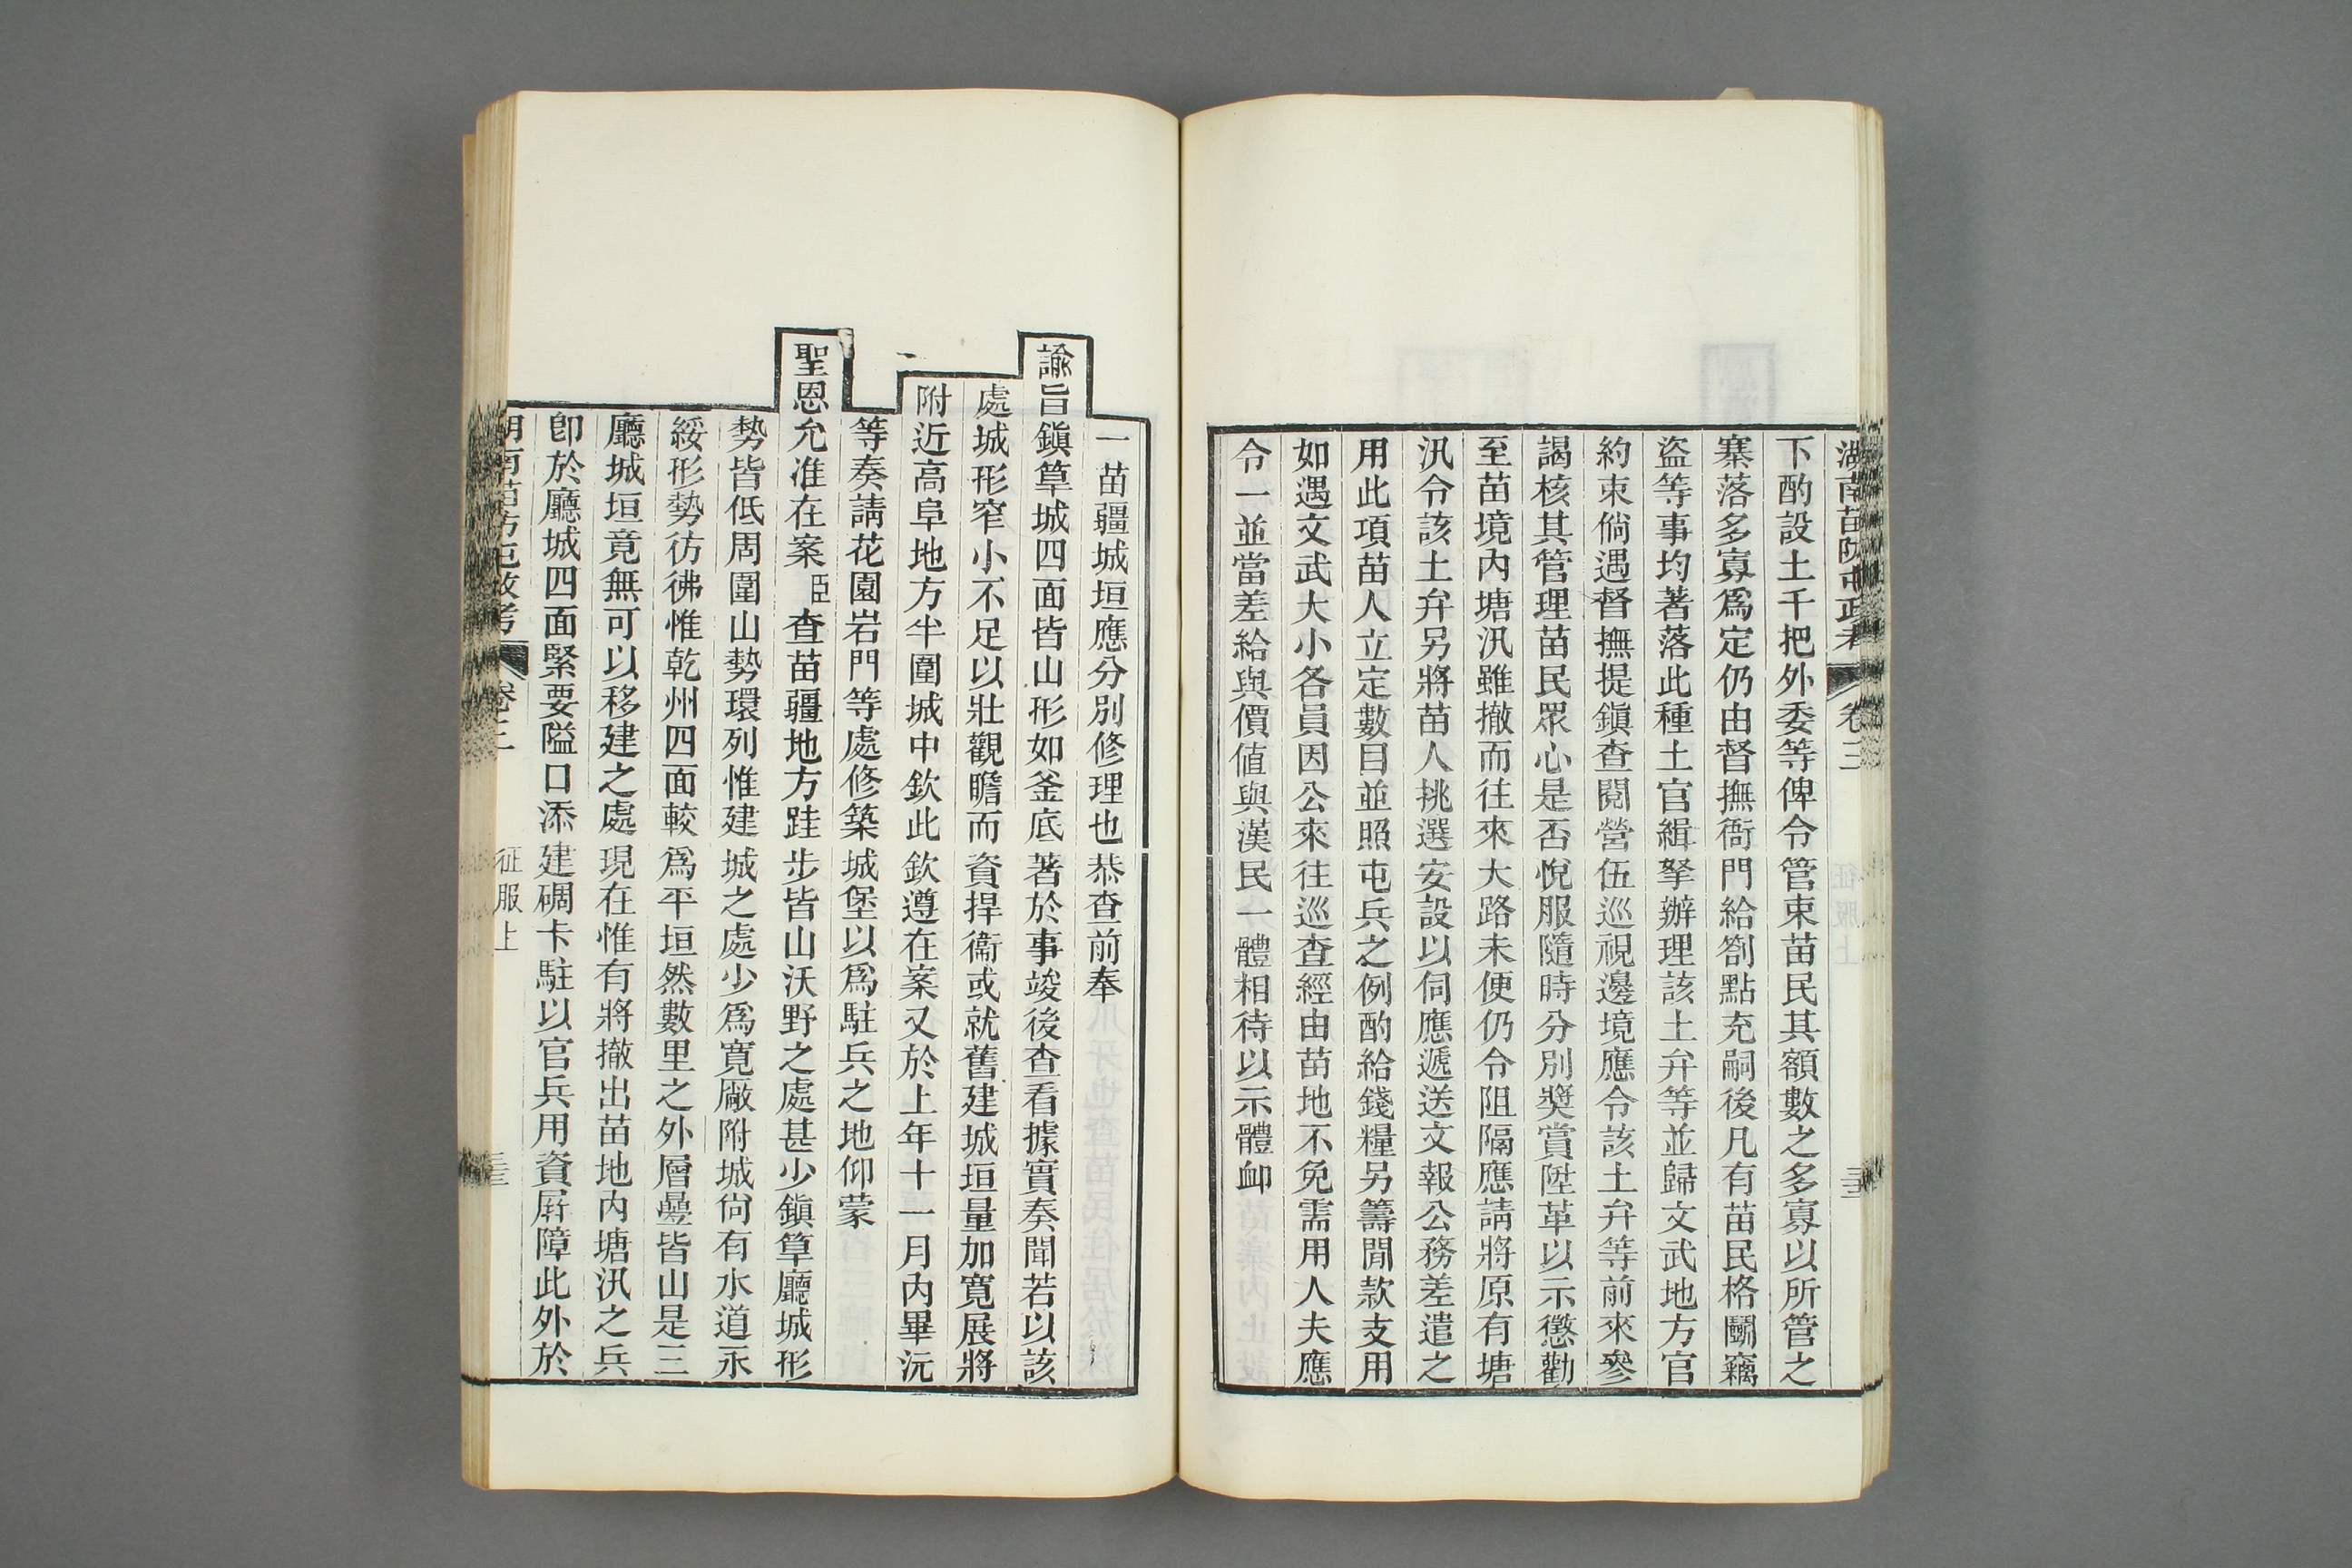 湖南苗防屯政考 卷三
下酌設土千把外委等俾令管束苗民其額數之多寡以所管之
寨落多寡爲定仍由督撫衙門給劄點充嗣後凡有苗民格鬬竊
盜等事均著落此種土官緝拏辦理該土弁等並歸文武地方官
約束倘遇督撫提鎮查閱營伍巡視邊境應令該土弁等前來參
謁核其管理苗民眾心是否悅服隨時分別奬賞陞革以示懲勸
至苗境內塘汛雖撤而往來大路未便仍令阻隔應請將原有塘
汛令該土弁另將苗人挑選安設以伺應遞送文報公務差遣之
用此項苗人立定數目並照屯兵之例酌給錢糧另籌閒款支用
如遇文武大小各員因公來往巡查經由苗地不免需用人夫應
令一並當差給與價值與漢民一體相待以示體卹
一苗疆城垣應分別修理也恭查前奉
諭旨鎮筸城四面皆山形如釜底著於事竣後查看據實奏聞若以該
處城形窄小不足以壯觀瞻而資捍衞或就舊建城垣量加寬展將
附近高阜地方半圍城中欽此欽遵在案又於上年十一月內畢沅
等奏請花園岩門等處修築城堡以爲駐兵之地仰蒙
聖恩允准在案臣查苗疆地方跬步皆山沃野之處甚少鎮筸廳城形
勢皆低周圍山勢環列惟建城之處少爲寬厰附城尙有水道永
綏形勢彷彿惟乾州四面較爲平垣然數里之外層疊皆山是三
廳城垣竟無可以移建之處現在惟有將撤出苗地內塘汛之兵
卽於廳城四面緊要隘口添建碉卡駐以官兵用資屛障此外於
湖南苗防屯政考 卷三 征服上